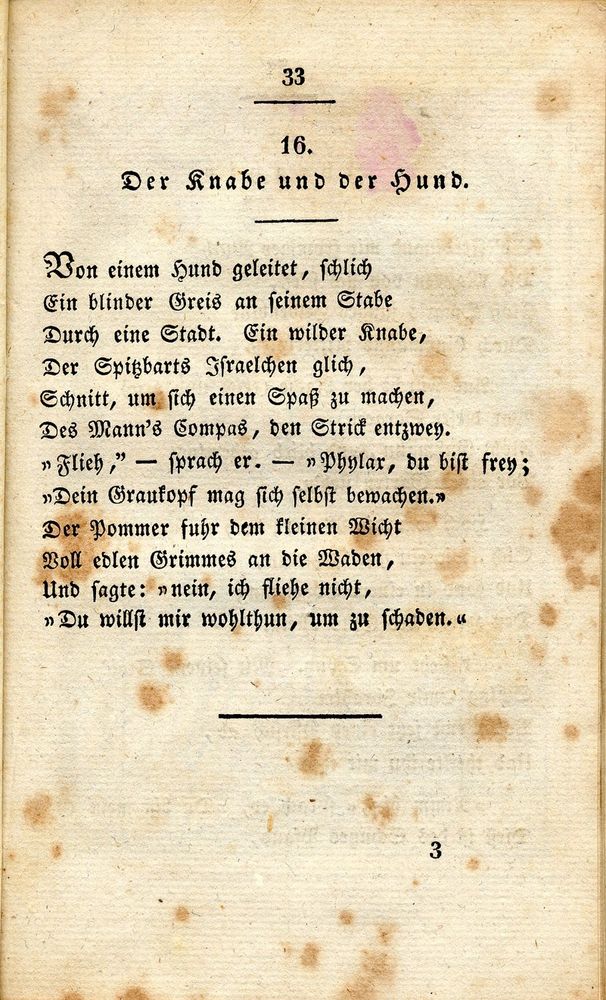 33
16.
Der Knabe und der Hund.
Von einem Hund geleitet, schlich
Ein blinder Greis an seinem Stabe
Durch eine Stadt. Ein wilder Knabe,
Der Spitzbarts Israelchen glich,
Schnitt, um sich einen Spaß zu machen,
Des Mann's Compas, den Strick entzwey.
„Flieh,” — sprach er. — „Phylax, du bist frey;
„Dein Graukopf mag sich selbst bewachen.„
Der Pommer fuhr dem kleinen Wicht
Voll edlen Grimmes an die Waden,
Und sagte: „nein, ich fliehe nicht,
„Du willst mir wohlthun, um zu schaden.“
3